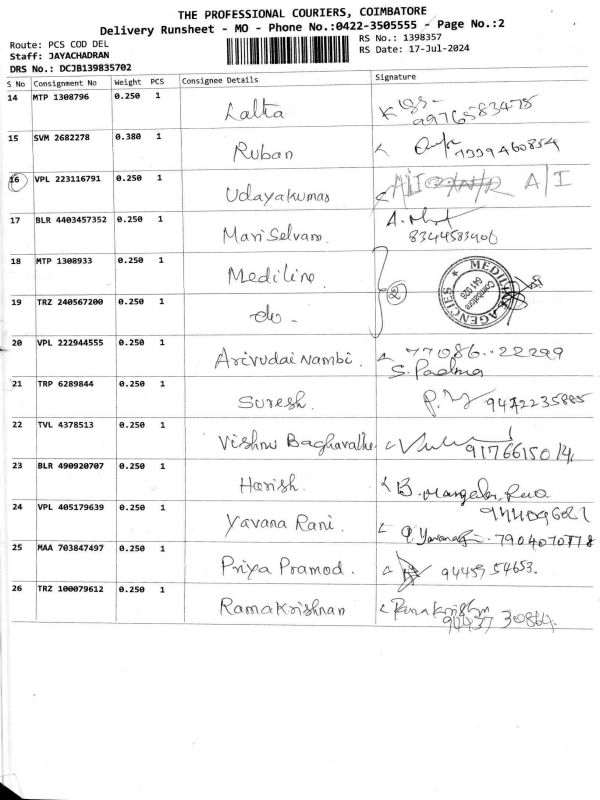 THE PROFESSIONAL COURIERS, COIMBATORE
Delivery Runsheet - MO - Phone No.:0422-3505555 - Page No.:2
Route: PCS COD DEL
RS No.: 1398357
Staff: JAYACHADRAN
RS Date: 17-Jul-2024
DRS No.: DCJB139835702
S No Consignment No Weight PCS Consignee Details Signature
14 MTP 1308796 0.250 1 Lalita 9976583475
15 SVM 2682278 0.380 1 Ruban
16 VPL 223116791 0.250 1 Udayakumar A/I
17 BLR 4403457352 0.250 1 Mari Selvam 8344583906
18 MTP 1308933 0.250 1 Mediline 2
MEDILINE AGENCIES
Coimbatore
641 028
19 TRZ 240567200 0.250 1 do -
20 VPL 222944555 0.250 1 Arivudai Nambi. 77086..22299
S. Padma
21 TRP 6289844 0.250 1 Suresh.
22 TVL 4378513 0.250 1 Vishnu Baghavathi
23 BLR 490920707 0.250 1 Harish. B.
24 VPL 405179639 0.250 1 Yavana Rani.
25 MAA 703847497 0.250 1 Priya Pramod. 94459 54653.
26 TRZ 100079612 0.250 1 RamaKrishnan Ramakrishn
94437 30864.